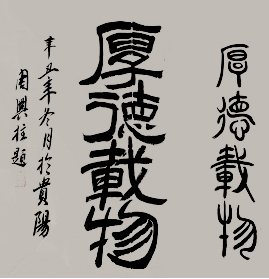 厚德載物
厚德載物
辛丑年冬月於貴陽
周興拄題